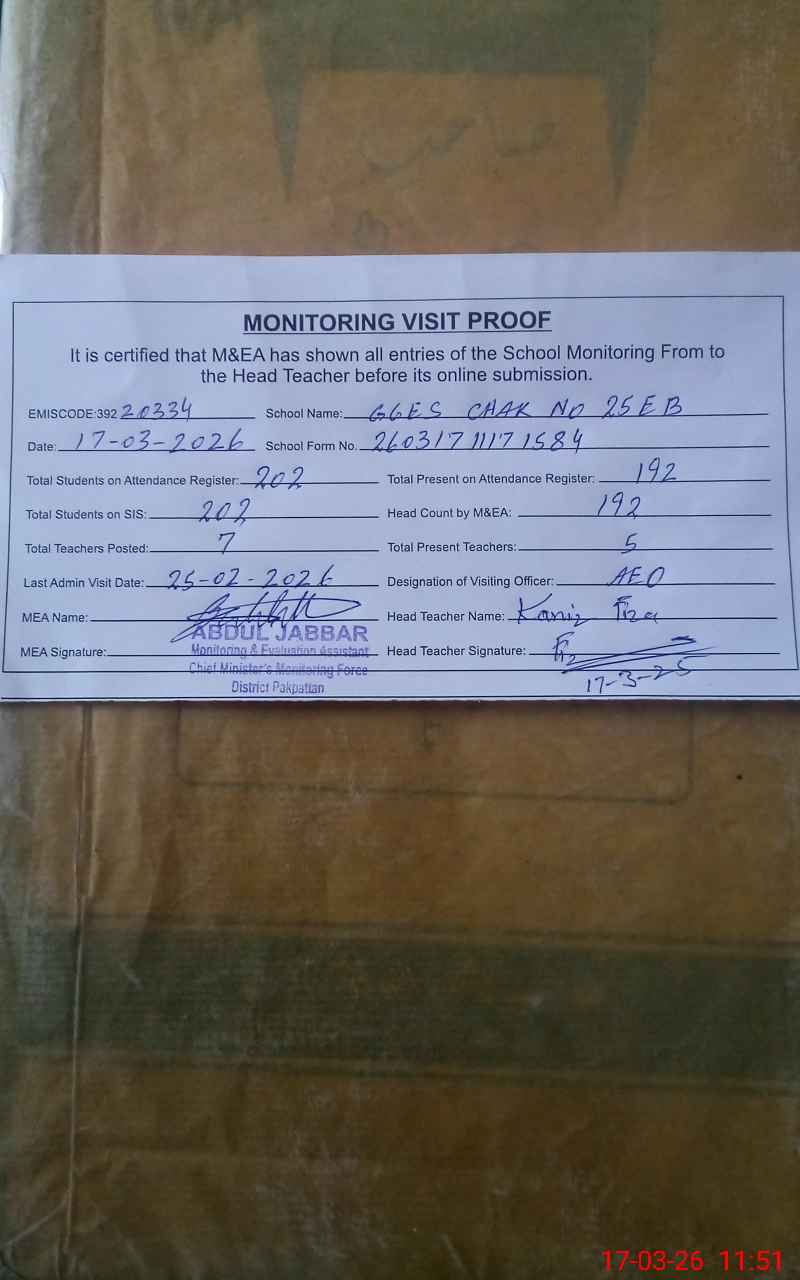 صاحب
MONITORING VISIT PROOF
It is certified that M&EA has shown all entries of the School Monitoring From to
the Head Teacher before its online submission.
EMISCODE:392 20334 School Name: GGES CHAK NO 25EB
Date: 17-03-2026 School Form No. 260317 1117 1584
Total Students on Attendance Register: 202 Total Present on Attendance Register: 192
Total Students on SIS: 202 Head Count by M&EA: 192
Total Teachers Posted: 7 Total Present Teachers: 5
Last Admin Visit Date: 25-02-2026 Designation of Visiting Officer: AEO
MEA Name: Head Teacher Name: Kaniz Fiza
ABDUL JABBAR
MEA Signature: Monitoring & Evaluation Assistant Head Teacher Signature:
Chief Minister's Monitoring Force 17-3-25
District Pakpattan
17-03-26 11:51